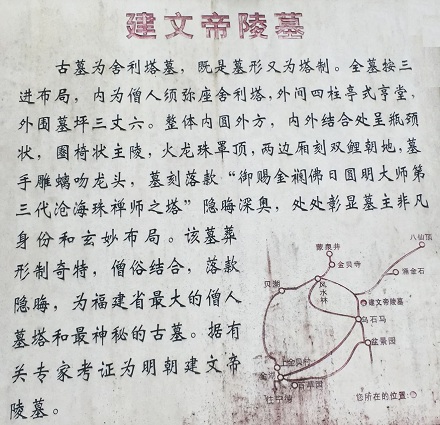 建文帝陵墓
古墓为舍利塔墓，既是墓形又为塔制。全墓按三
进布局，内为僧人须弥座舍利塔，外间四柱亭式亨堂，
外围墓坪三丈六。整体内圆外方，内外结合处呈瓶颈
状，圈椅状主陵，火龙珠罩顶，两边厢刻双鲤朝地，墓
手雕螭吻龙头，墓刻落款“御赐金襕佛日圆明大师第
三代沧海珠禅师之塔”隐晦深奥，处处彰显墓主非凡
身份和玄妙布局。该墓葬
形制奇特，僧俗结合，落款
隐晦，为福建省最大的僧人
墓塔和最神秘的古墓。据有
关专家考证为明朝建文帝
陵墓。
八仙顶
蒙泉井
金贝寺
渔金石
贝湖
风水林
建文帝陵墓
乌石马
盆景园
上金贝村
金湾
百草园
您所在的位置：